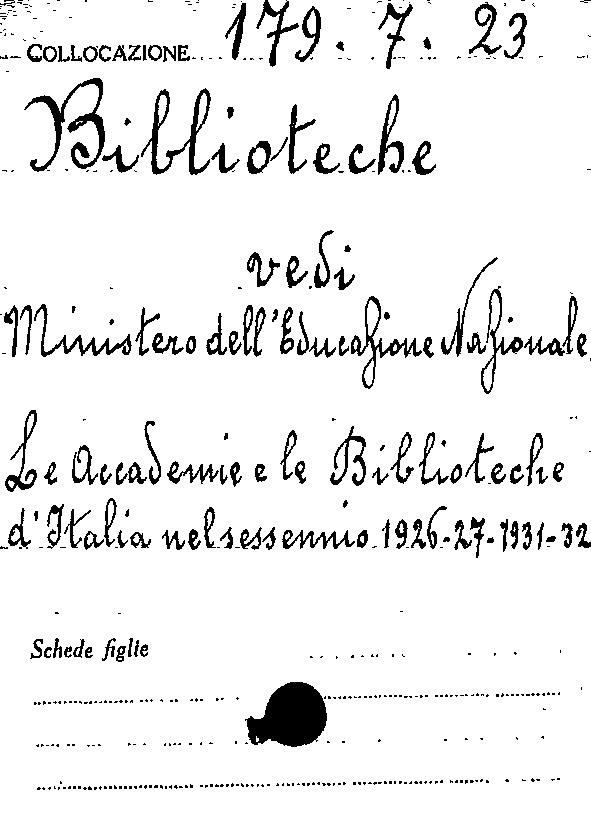 COLLOCAZIONE 179. 7. 23
Biblioteche
vedi
Ministero dell'Educazione Nazionale
Le Accademie e le Biblioteche
d'Italia nel sessennio 1926-27-1931-32
Schede figlie